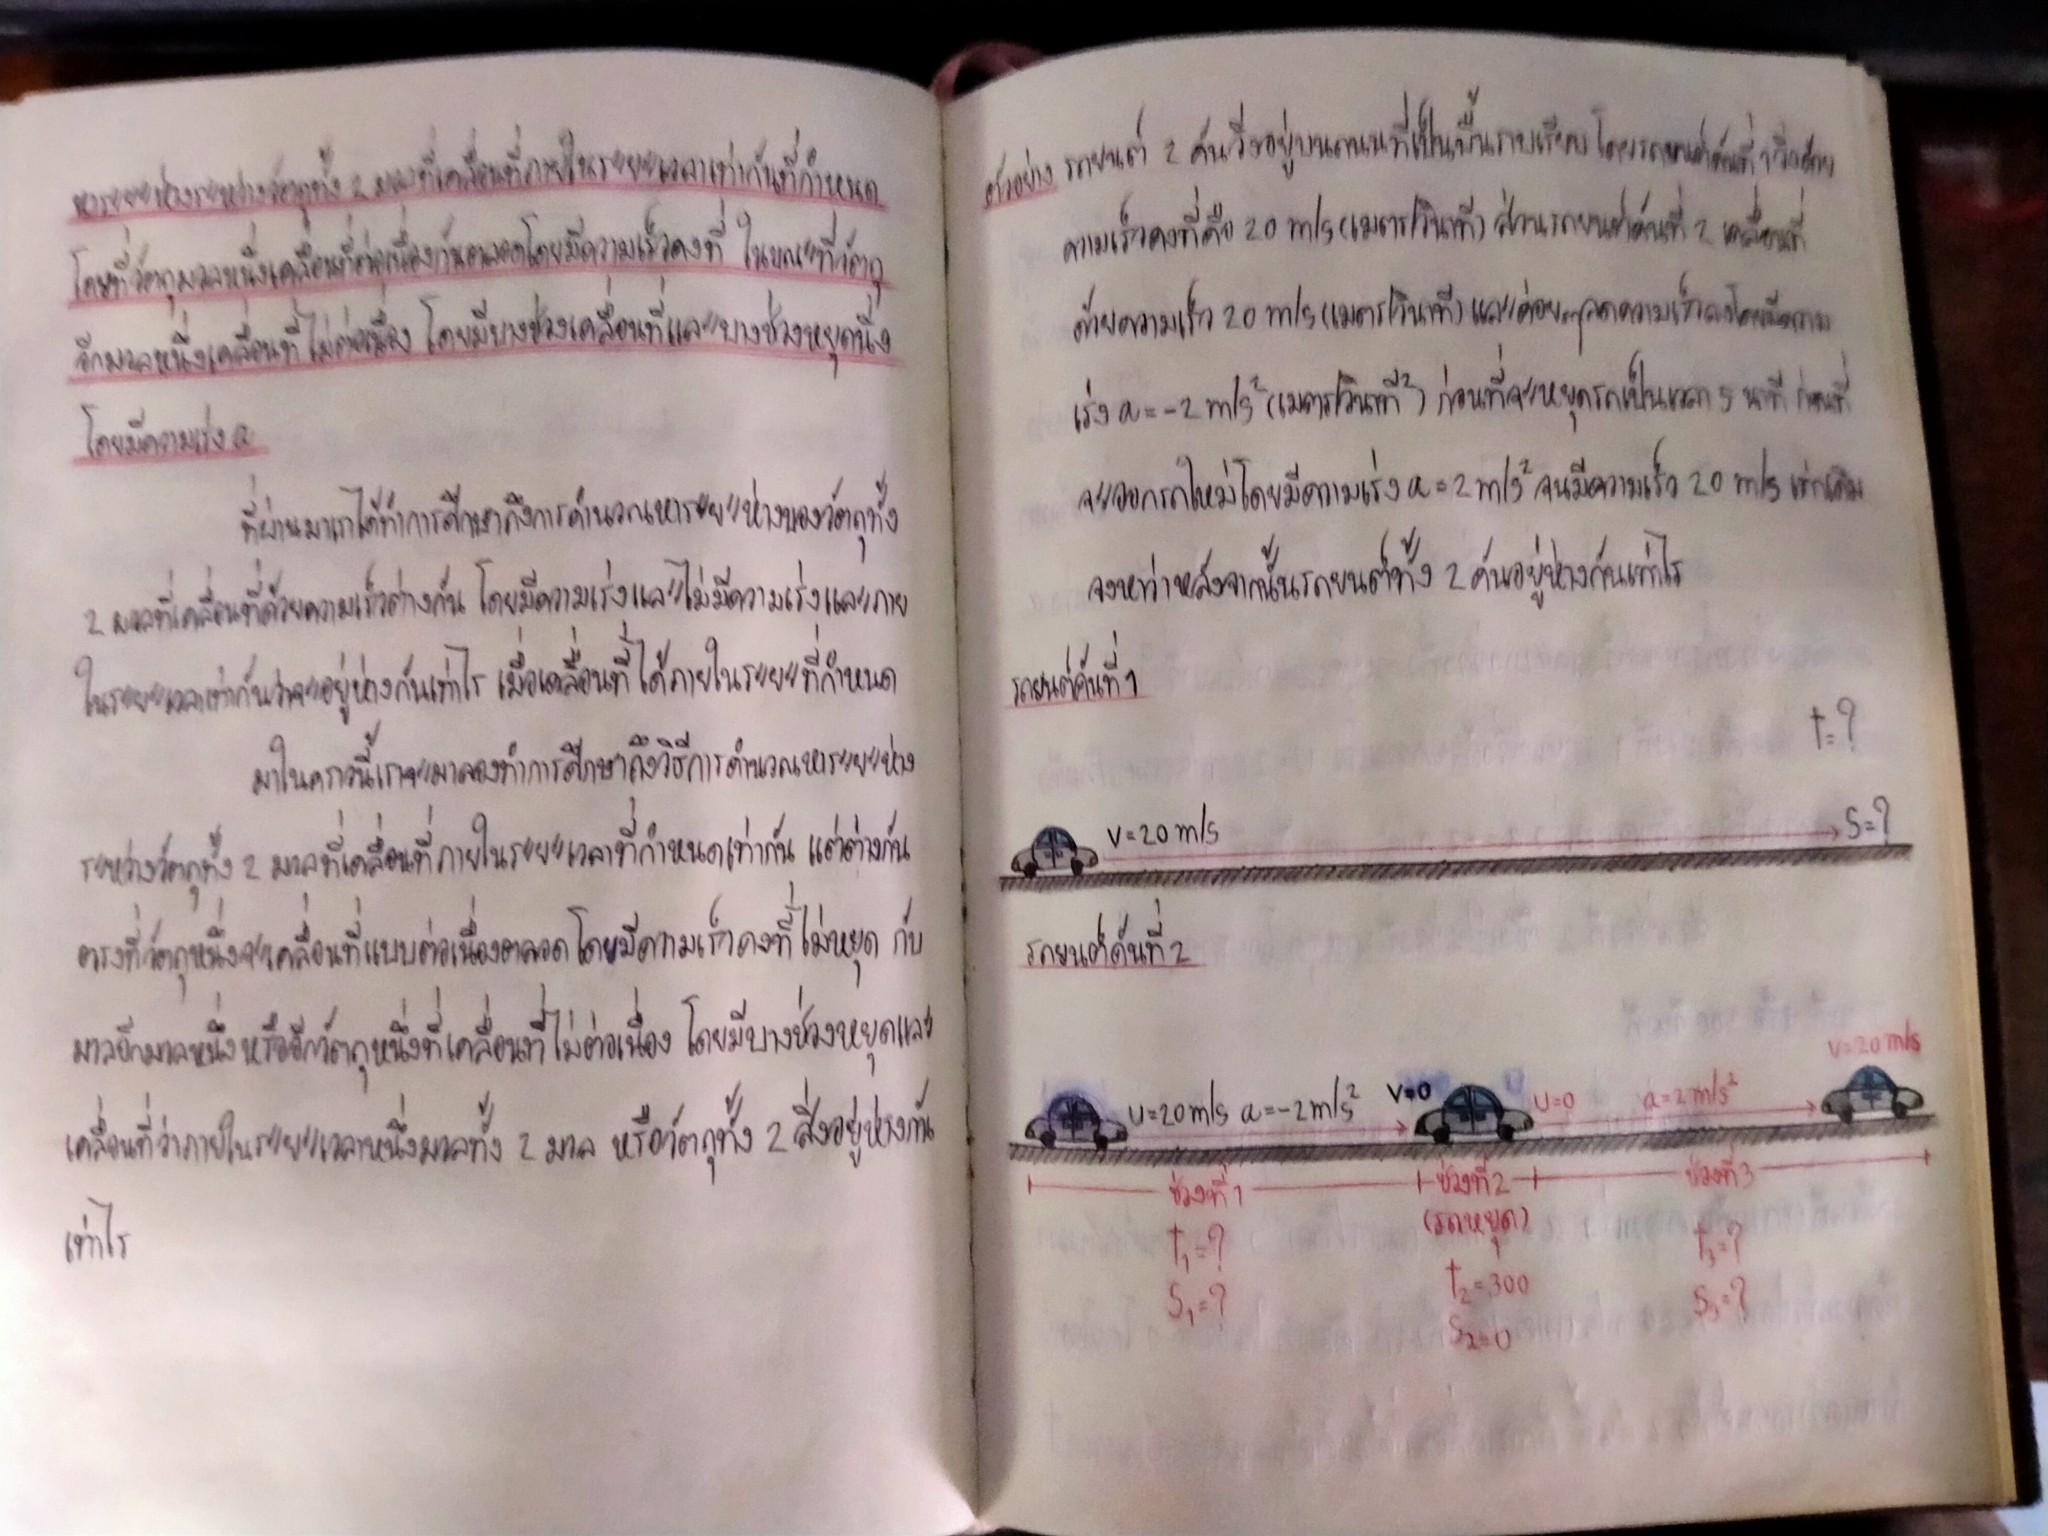 หาระยะห่างระหว่างวัตถุทั้ง 2 มวลที่เคลื่อนที่ภายในระยะเวลาเท่ากันที่กำหนด
โดยที่วัตถุมวลหนึ่งเคลื่อนที่ต่อเนื่องกันตลอดโดยมีความเร็วคงที่ ในขณะที่วัตถุ
อีกมวลหนึ่งเคลื่อนที่ไม่ต่อเนื่อง โดยมีบางช่วงเคลื่อนที่และบางช่วงหยุดนิ่ง
โดยมีความเร่ง a
ที่ผ่านมาเราได้ทำการศึกษาถึงการคำนวณหาระยะห่างของวัตถุทั้ง
2 มวลที่เคลื่อนที่ด้วยความเร็วต่างกัน โดยมีความเร่งและไม่มีความเร่งและภาย
ในระยะเวลาเท่ากันว่าจะอยู่ห่างกันเท่าไร เมื่อเคลื่อนที่ได้ภายในระยะที่กำหนด
มาในคราวนี้เราจะมาลองทำการศึกษาถึงวิธีการคำนวณหาระยะห่าง
ระหว่างวัตถุทั้ง 2 มวลที่เคลื่อนที่ภายในระยะเวลาที่กำหนดเท่ากัน แต่ต่างกัน
ตรงที่วัตถุหนึ่งจะเคลื่อนที่แบบต่อเนื่องตลอดโดยมีความเร็วคงที่ไม่หยุด กับ
มวลอีกมวลหนึ่งหรืออีกวัตถุหนึ่งที่เคลื่อนที่ไม่ต่อเนื่อง โดยมีบางช่วงหยุดและ
เคลื่อนที่ว่าภายในระยะเวลาหนึ่งมวลทั้ง 2 มวล หรือวัตถุทั้ง 2 สิ่งอยู่ห่างกัน
เท่าไร
ตัวอย่าง รถยนต์ 2 คันวิ่งอยู่บนถนนที่เป็นพื้นราบเรียบ โดยรถยนต์คันที่ 1 วิ่งด้วย
ความเร็วคงที่คือ 20 m/s (เมตร/วินาที) ส่วนรถยนต์คันที่ 2 เคลื่อนที่
ด้วยความเร็ว 20 m/s (เมตร/วินาที) และค่อยๆลดความเร็วลงโดยมีความ
เร่ง a = -2 m/s² (เมตร/วินาที²) ก่อนที่จะหยุดรถเป็นเวลา 5 นาที ก่อนที่
จะออกรถใหม่โดยมีความเร่ง a = 2 m/s² จนมีความเร็ว 20 m/s เท่าเดิม
จงหาว่าหลังจากนั้นรถยนต์ทั้ง 2 คันอยู่ห่างกันเท่าไร
รถยนต์คันที่ 1
t=?
v=20 m/s
s=?
รถยนต์คันที่ 2
v=20 m/s
u=20 m/s a=-2 m/s² v=0 u=0 a=2 m/s²
ช่วงที่ 1 ช่วงที่ 2 ช่วงที่ 3
(รถหยุด)
t₁=? t₂=300 t₃=?
s₁=? s₂=0 s₃=?